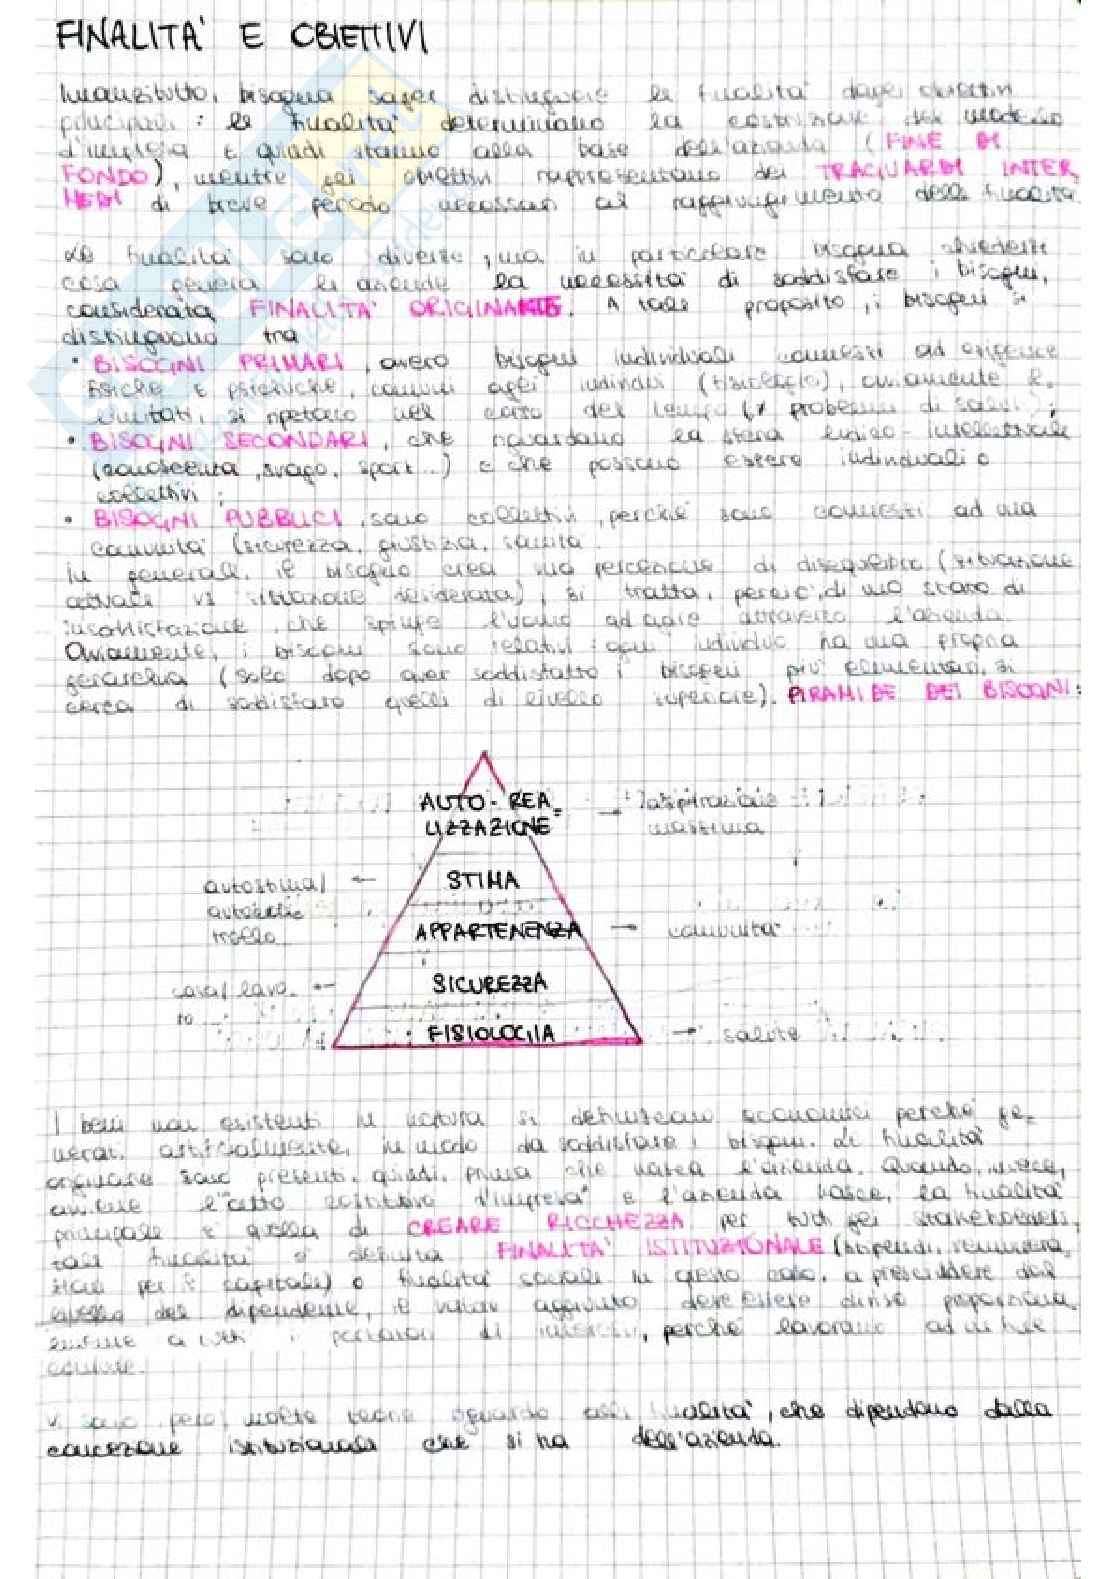 FINALITA' E OBIETTIVI
Innanzitutto, bisogna saper distinguere le finalità dagli obiettivi
principali: le finalità determinano la costruzione del modello
d'impresa e quindi stanno alla base dell'azienda (FINE DI
FONDO), mentre gli obiettivi rappresentano dei TRAGUARDI INTER
MEDI di breve periodo necessari al raggiungimento delle finalità
Le finalità sono diverse, ma in particolare bisogna chiedersi
cosa genera le aziende la necessità di soddisfare i bisogni,
considerata FINALITA' ORIGINARIE. A tale proposito, i bisogni si
distinguono tra
• BISOGNI PRIMARI, ovvero bisogni individuali connessi ad esigenze
fisiche e psichiche, comuni agli individui (fisiologia), ovviamente
limitati, si ripetono nel corso del tempo (x problemi di salute);
• BISOGNI SECONDARI, che riguardano la sfera fisico-intellettuale
(conoscenza, svago, sport...) e che possono essere individuali o
collettivi;
• BISOGNI PUBBLICI, sono collettivi, perché sono connessi ad una
comunità (sicurezza, giustizia, sanità
In generale, il bisogno crea una percezione di disequilibrio (situazione
attuale vs situazione desiderata), si tratta, perciò, di uno stato di
insoddisfazione, che spinge l'uomo ad agire attraverso l'azienda.
Ovviamente, i bisogni sono relativi: ogni individuo ha una propria
gerarchia (solo dopo aver soddisfatto i bisogni più elementari, si
cerca di soddisfare quelli di livello superiore). PIRAMIDE DEI BISOGNI:
AUTO-REA- → l'aspirazione
LIZZAZIONE massima
autostima/ ← STIMA
autocon
trollo
APPARTENENZA → comunità
casa/lavo- ← SICUREZZA
ro
FISIOLOGIA → salute
I beni non esistenti in natura si definiscono economici perché ge-
nerati artificialmente, in modo da soddisfare i bisogni. Le finalità
originarie sono presenti, quindi, prima che nasca l'azienda. Quando, invece,
avviene l'"atto costitutivo d'impresa" e l'azienda nasce, la finalità
principale è quella di CREARE RICCHEZZA per tutti gli stakeholders,
tale finalità si definisce FINALITA' ISTITUZIONALE (stipendi, remunera-
zioni per il capitale) o finalità sociale in questo caso, a prescindere dal
livello del dipendente, il valore aggiunto deve essere diviso proporzional-
mente a tutti i portatori di interessi, perché lavorano ad un fine
comune.
Vi sono, però, molte teorie riguardo alle finalità, che dipendono dalla
concezione istituzionale che si ha dell'azienda.